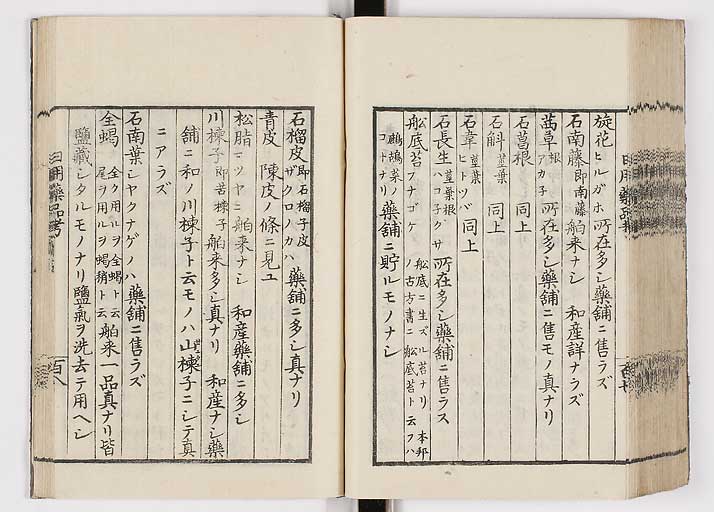 旋花ヒルガホ所在多シ薬舗ニ售ラズ
石南藤即南藤 舶来ナシ 和産詳ナラズ
茜草根アカ子 所在多シ薬舗ニ售モノ真ナリ
石葛根 同上
石斛莖葉 同上
石韋莖葉ヒトツバ 同上
石長生莖葉根ハコ子グサ 所在多シ薬舗ニ售ラス
舩底苔フナゴケ 舩底ニ生ズル苔ナリ 本邦
ノ古方書ニ舩底苔ト云フハ
鷓鴣菜ノ
コトナリ 薬舗ニ貯ルモノナシ
石榴皮即石榴子皮ザクロノカハ 薬舗ニ多シ真ナリ
青皮 陳皮ノ條ニ見ユ
松脂マツヤニ 舶来ナシ 和産薬舗ニ多シ
川楝子即苦楝子 舶来多シ真ナリ 和産ナシ薬
舗ニ和ノ川楝子ト云モノハ山楝子ニシテ真
ニアラズ
石南葉シヤクナゲノハ 薬舗ニ售ラズ
全蝎 全ク用ルヲ全蝎ト云
尾ヲ用ルヲ蝎稍ト云 舶来一品真ナリ皆
鹽藏シタルモノナリ鹽氣ヲ洗去テ用ヘシ
日用薬品考
百八